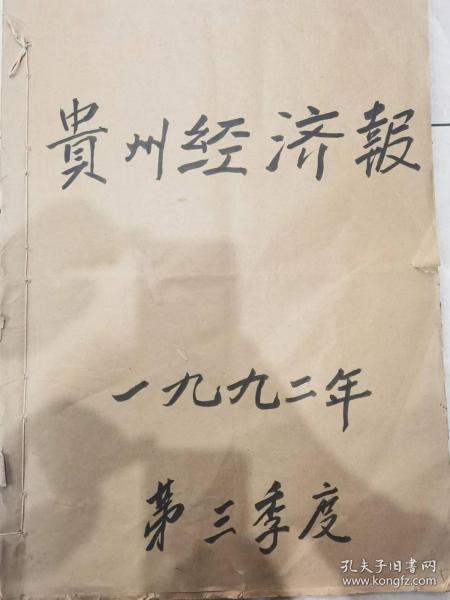 貴州经济報
一九九二年
第三季度
孔夫子旧书网
www.kongfz.com